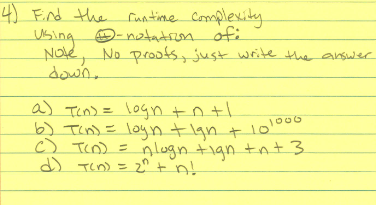 4) Find the runtime complexity
Using Θ-notation of:
Note, No proofs, just write the answer
down.
a) T(n) = logn + n + 1
b) T(n) = logn + lgn + 10^1000
c) T(n) = nlogn + lgn + n + 3
d) T(n) = 2^n + n!